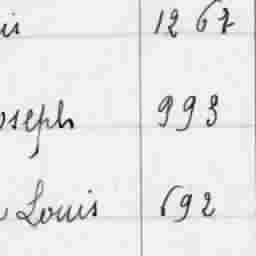 is 1267
oseph 993
Louis 692